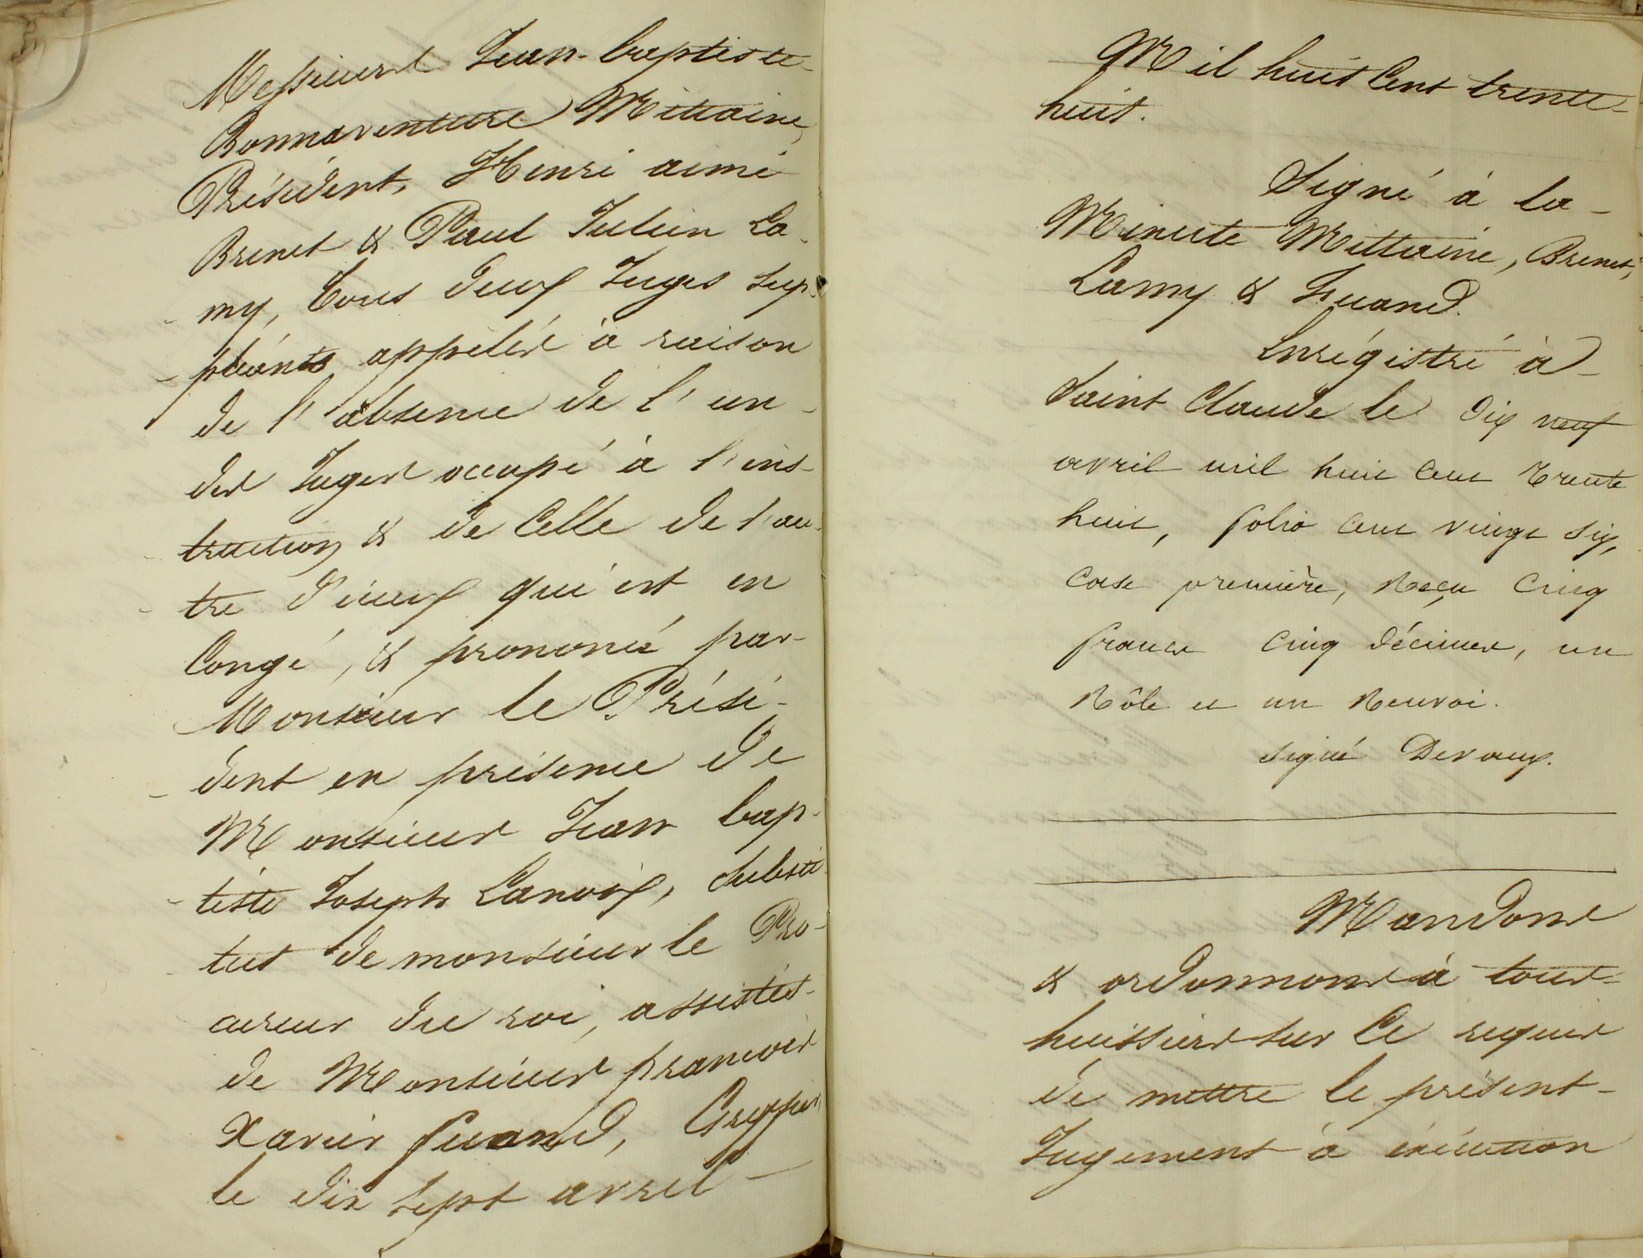 Messieurs Jean-baptiste
Bonnaventure Mittaine,
Président, Henri aimé
Brenet & Paul Julien La-
my, tous deux Juges sup-
pléants appelés à raison
de l'absence de l'un
des Juges occupé à l'ins-
truction & de celle de l'au-
tre d'eux qui est en
Congé, & prononcé par
Monsieur le Prési-
dent en présence de
Monsieur Jean bap-
tiste Joseph Lanoix, substi
tut de monsieur le Pro-
cureur du roi, assistés
de Monsieur francois
Xavier fuand, Greffier
le dix sept avril
Mil huit Cent trente
huit.
Signé à la
Minute Mittaine, Brenet,
Lamy & Fuand.
Enrégistré à
Saint Claude le dix neuf
avril mil huit cent trente
huit, folio cent vingt six,
case première, Reçu cinq
francs cinq décimes, un
Rôle et un Renvoi.
signé Devaux.
Mandons
& ordonnons à tous
huissiers sur ce requis
de mettre le présent
Jugement à éxécution